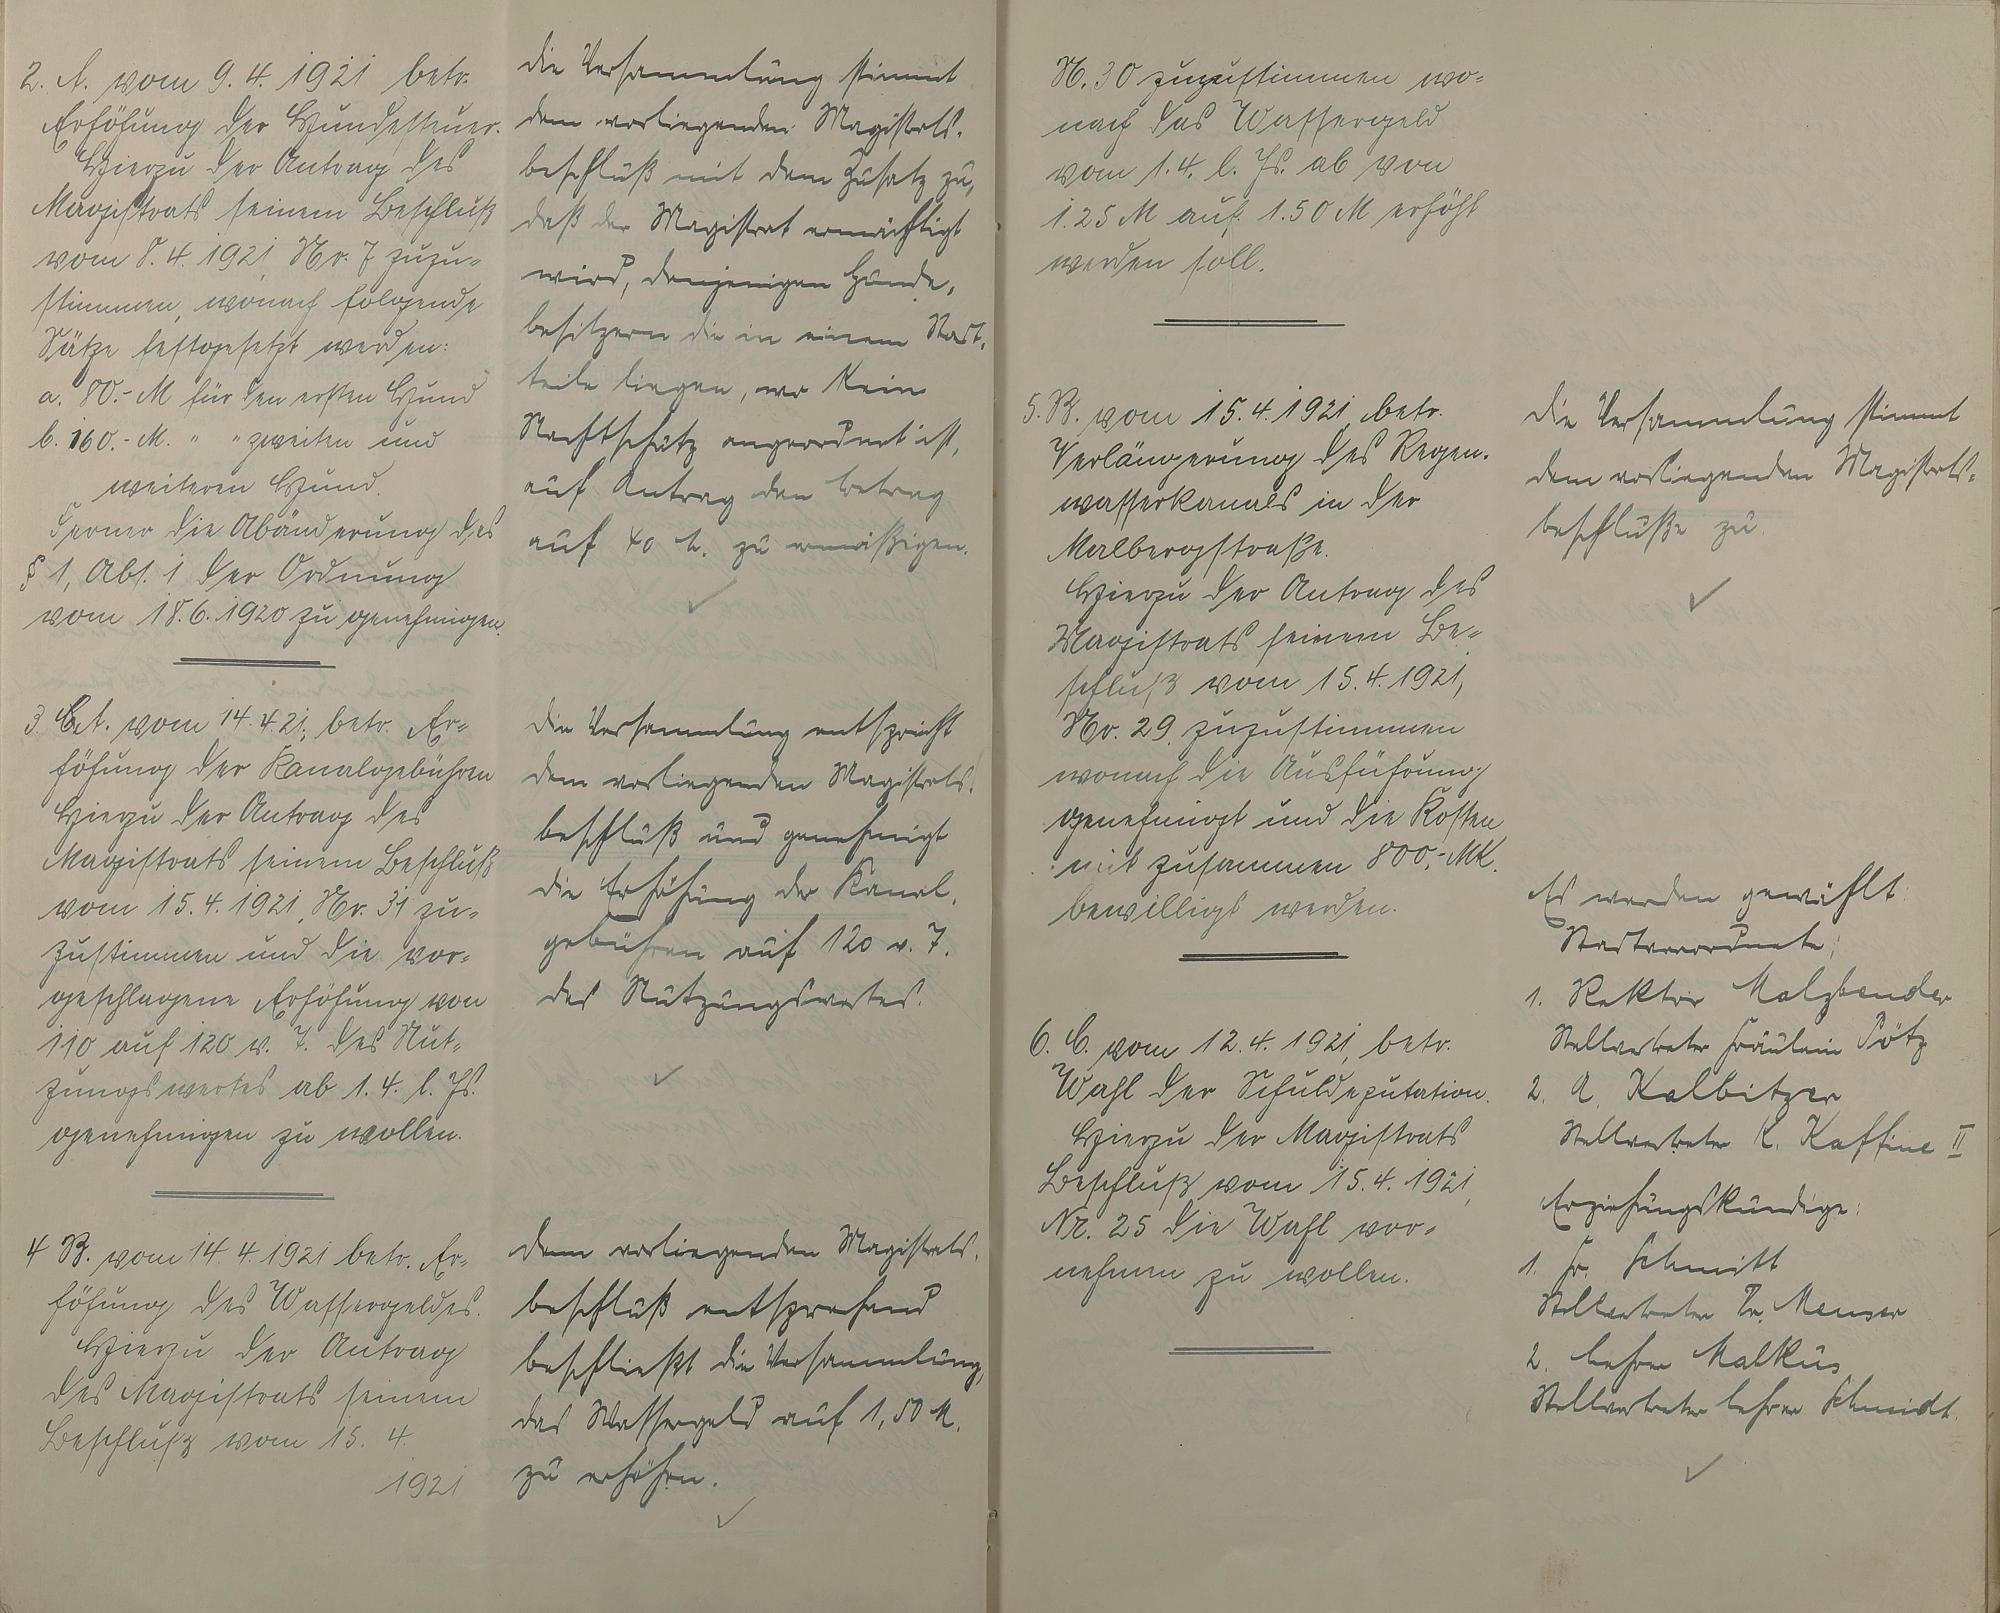 2. A. vom 9.4.1921 betr.
Erhöhung der Hundesteuer.
Hierzu der Antrag des
Magistrats seinem Beschluß
vom 8.4.1921, Nr. 7 zuzu=
stimmen, wonach folgende
Sätze festgesetzt werden:
a. 80.- M für den ersten Hund
b. 160.- M. " " zweiten und
weiteren Hund.
Ferner die Abänderung des
§ 1, Abs. 1 der Ordnung
vom 18.6.1920 zu genehmigen.
die Versammlung stimmt
dem vorliegenden Magistrats-
beschluß mit dem Zusatz zu,
daß der Magistrat ermächtigt
wird, denjenigen Hunde-
besitzern die in einem Stadt-
teile liegen, wo kein
Nachtschutz angeordnet ist,
auf Antrag den Betrag
auf 40 M. zu ermäßigen.
3. A. vom 14.4.21, betr. Er=
höhung der Kanalgebühren
Hierzu der Antrag des
Magistrats seinem Beschluß
vom 15.4.1921, Nr. 31 zu=
zustimmen und die vor=
geschlagene Erhöhung von
110 auf 120 v. H. des Nut=
zungswertes ab 1.4. l. Js.
genehmigen zu wollen.
die Versammlung entspricht
dem vorliegenden Magistrats-
beschluß und genehmigt
die Erhöhung der Kanal-
gebühren auf 120 v. H.
des Nutzungswertes.
4 B. vom 14.4.1921 betr. Er=
höhung des Wassergeldes.
Hierzu der Antrag
des Magistrats seinem
Beschluß vom 15. 4.
1921
dem vorliegenden Magistrats-
beschluß entsprechend
beschließt die Versammlung,
das Wassergeld auf 1,50 M.
zu erhöhen.
N. 30 zuzustimmen wo=
nach das Wassergeld
vom 1.4. l. Js. ab von
1.25 M auf 1.50 M erhöht
werden soll.
5. B. vom 15.4.1921, betr.
Verlängerung des Regen-
wasserkanals in der
Malbergstraße.
Hierzu der Antrag des
Magistrats seinem Be=
schluß vom 15.4.1921,
Nr. 29 zuzustimmen
wonach die Ausführung
genehmigt und die Kosten
mit zusammen 800,- Mk.
bewilligt werden.
die Versammlung stimmt
dem vorliegenden Magistrats=
beschluße zu.
6. C. vom 12.4.1921, betr.
Wahl der Schuldeputation.
Hierzu der Magistrats
Beschluß vom 15.4.1921,
Nr. 25 die Wahl vor=
nehmen zu wollen.
Es werden gewählt:
Stadtverordnete:
1. Rektor Malzbender
Stellvertreter Fräulein Pötz
2. A. Kalbitzer
Stellvertreter K. Kaffine II
Erziehungskundige:
1. Fr. Schmitt
Stellvertreter Dr. Menser
2. Lehrer Malkus
Stellvertreter Lehrer Schmidt.